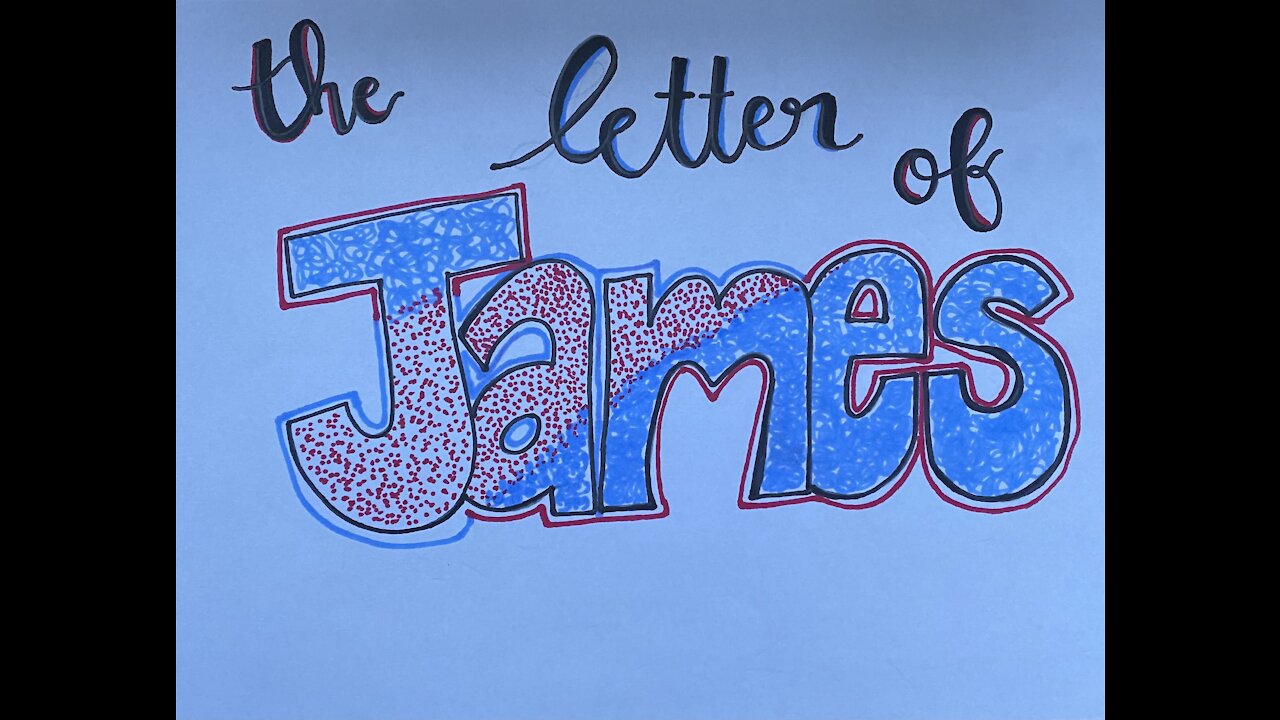 the letter of
James